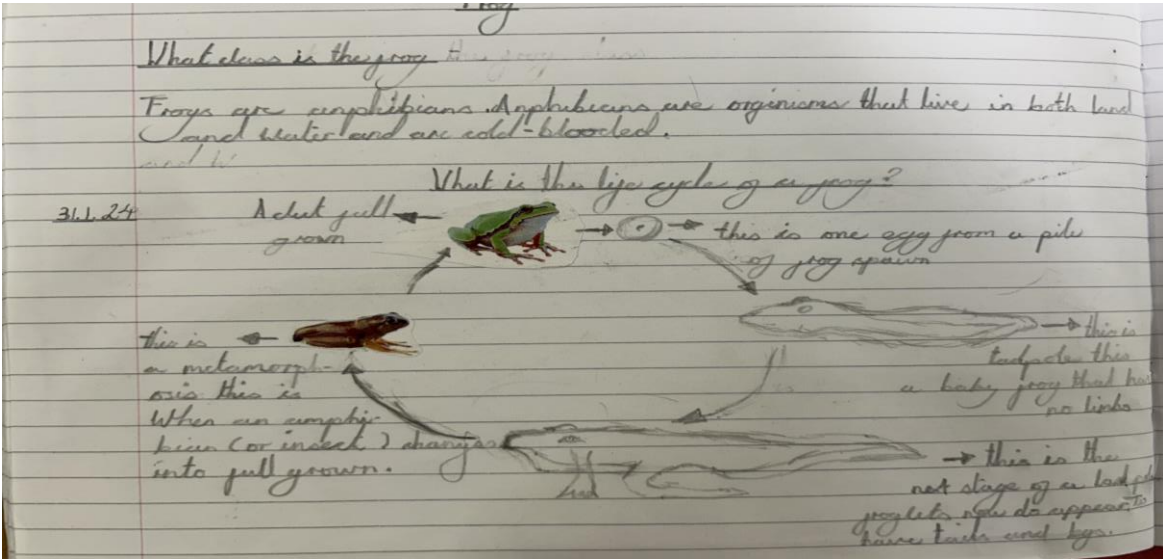 Frog
What class is the frog
Frogs are amphibians. Anphibeans are orginisms that live in both land
and water and are cold-blooded.
and w
What is the life cycle of a frog?
31.1.24
Adult full
grown
this is one egg from a pile
of frog spawn
this is
tadpole this
a baby frog that has
no limbs
this is the
next stage of a tadpole
froglets now do appear to
have tails and legs.
this is
a metamorph-
osis this is
When an amphi-
bian (or insect) changes
into full grown.